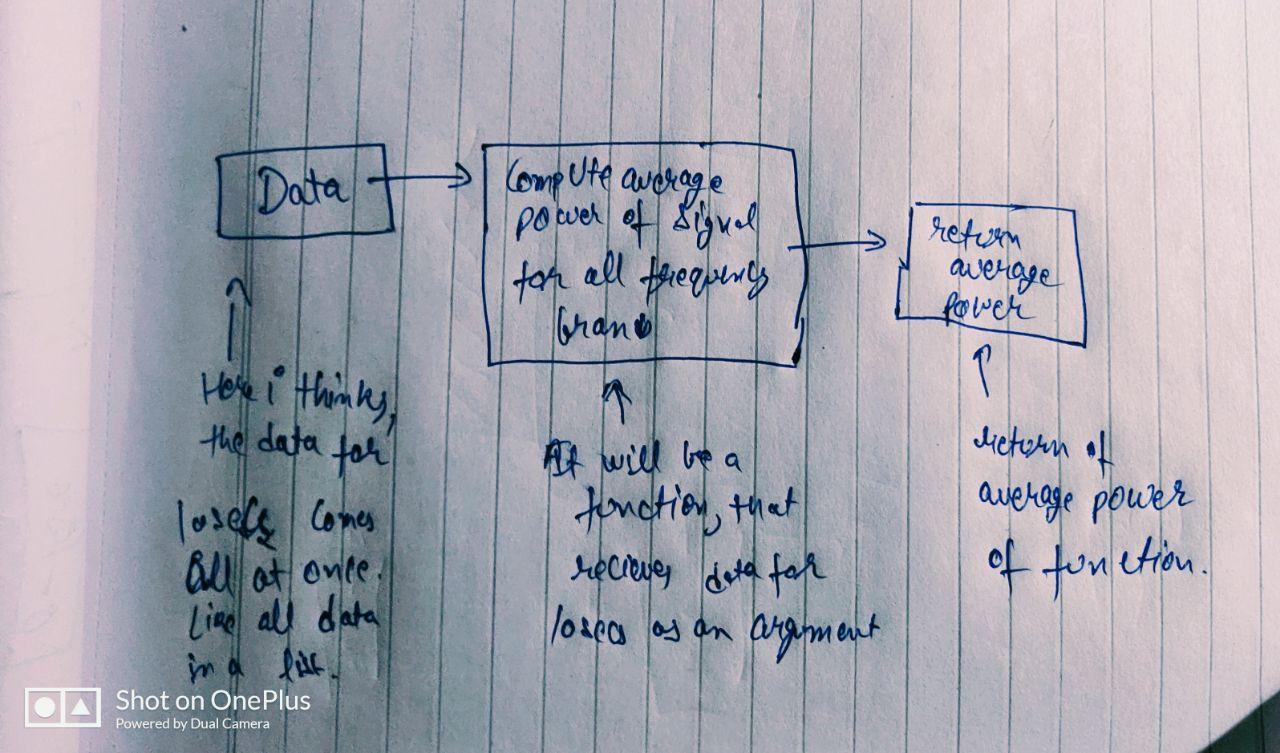 Data
Compute average
power of signal
for all frequency
return
average
power
Here i thinks,
the data for
10secs comes
all at once.
Like all data
in a list.
It will be a
function, that
recieves data for
10secs as an argument
return of
average power
of function.
Shot on OnePlus
Powered by Dual Camera